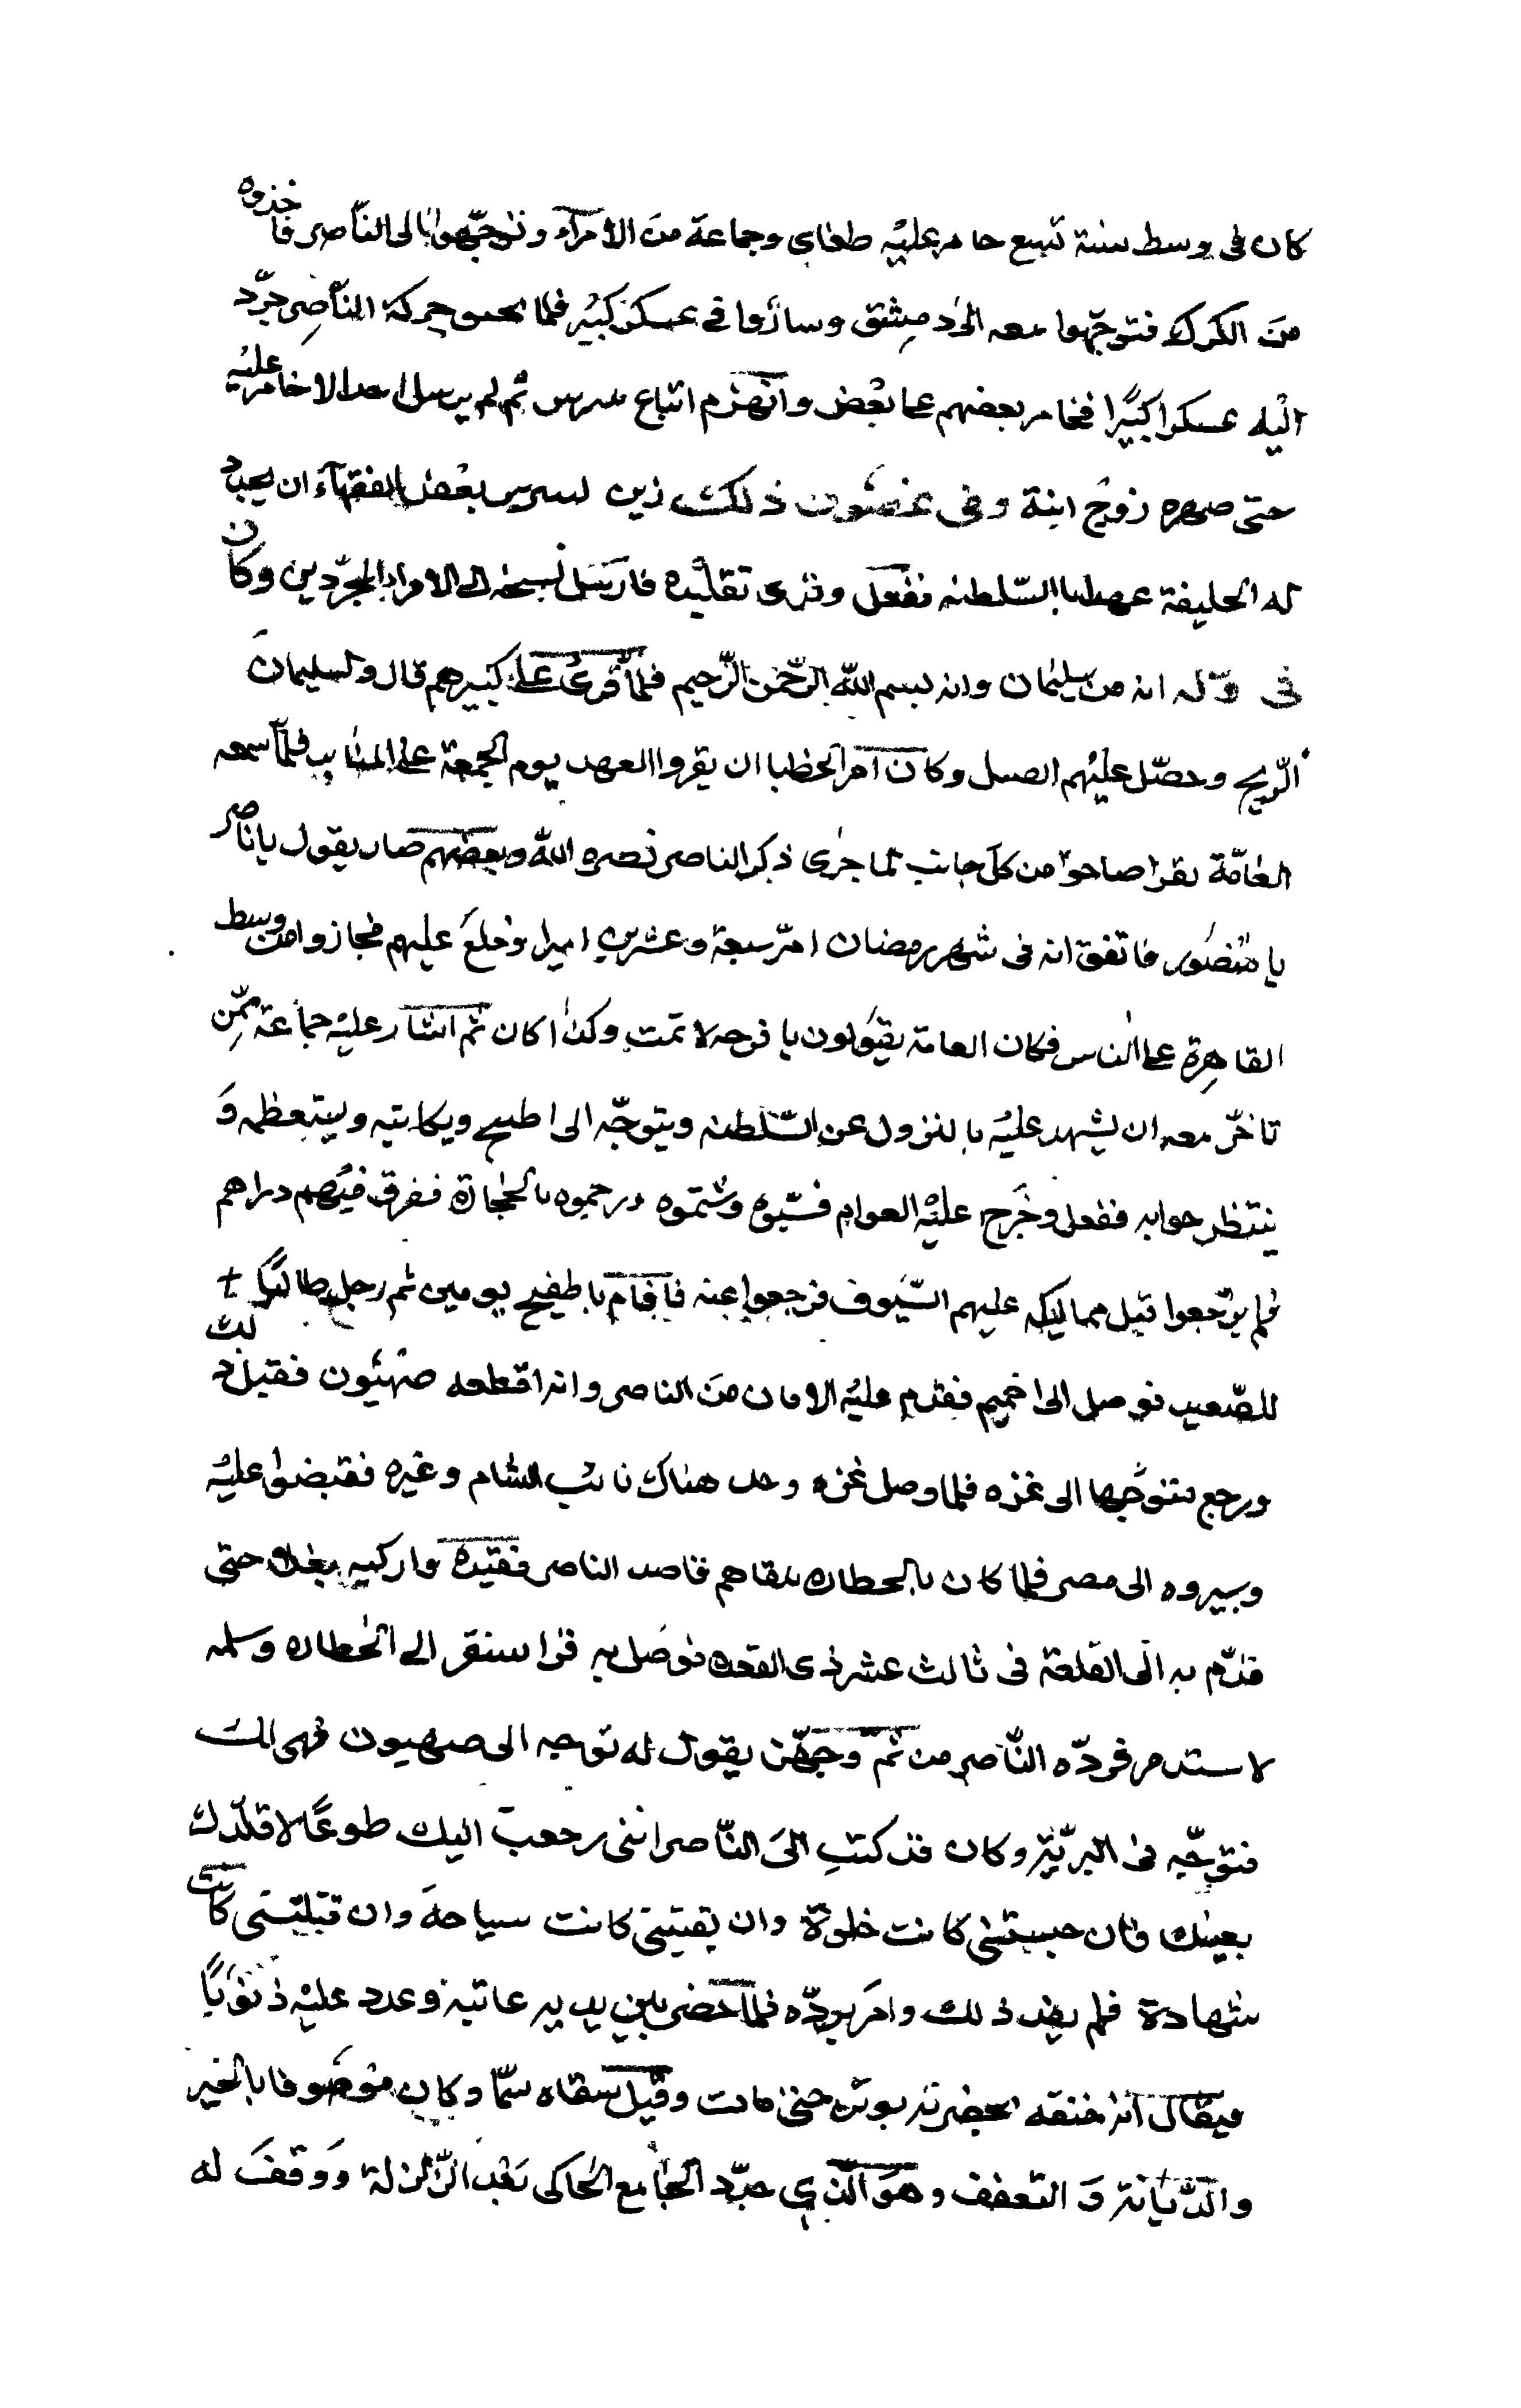 كان فى وسط سنة تسع خامر عليه طغاى وجماعة من الامرآء وتوجّهوا الى الناصر فاخذوه
من الكرك فتوجّهوا معه الى دمشق وساروا فى عسكر كبير فلما تحقق حركة الناصر جرّد
اليه عسكرا كبيرًا فخامر بعضهم على بعض وانهزم اتباع بيبرس ثم لم يرسل احدا الا خامر عليه
حتى صهره زوج ابنة وفى غضون ذلك زين لبيبرس بعض الفقهآء ان يجدد
له الخليفة عهدا بالسّلطنه ففعل وقرى تقليده فارسل نسخته الى الامرا المجرّدين وكان
فى اوّله انه من سليمان وانه بسم الله الرّحمن الرّحيم فلمّا قرئ على كبيرهم قال ولسليمان
الرّيح وحصّل عليهم الفشل وكان امر الخطبا ان يقروا العهد يوم الجمعة على المنابر فلمّا سمعه
العامّة يقرا صاحوا من كلّ جانب لما جرى ذكر الناصر نصره الله وبعضهم صار يقول يا ناصر
يا منصور فاتفق انه فى شهر رمضان امّر سبعة وعشرين اميرا وخلع عليهم فجازوا من وسط
القاهرة على الناس فكان العامة يقولون يا فرحه لا تمت وكذا كان ثم اشار عليه جماعة ممّن
تاخّر معه ان يشهد عليه بالنزول عن السّلطنه ويتوجّه الى اطفيح ويكاتبه ويستعطفه و
ينتظر جوابه ففعل وخرج عليه العوام فسبّوه وشتموه ورجموه بالحجارة ففرق فيهم دراهم
فلم يرجعوا فسل مماليكه عليهم السّيوف فرجعوا عنه فاقام باطفيح يومين ثم رحل طالبًا
للصّعيد فوصل الى اخميم فقدم عليه الامان من الناصر وانه اقطعه صهيون فقبل ذلك
ورجع متوجّها الى غزه فلما وصل غزه وجد هناك نائب الشام وغيره فقبضوا عليه
وسيروه الى مصر فلما كان بالخطاره تلقاهم قاصد الناصر فقيّده واركبه بغلا حتى
قدّم به الى القلعة فى ثالث عشر ذى القعده فوصل به قرا سنقر الى الخطاره وسلمه
لاستدمر فردّه النّاصر من ثمّ وجهّز يقول له توجه الى صهيون فهى لك
فتوجّه فى البريّة وكان قد كتب الى النّاصر اننى رجعت اليك طوعًا لاقلّدك
بغيك فان حبستنى كانت خلوة وان نفيتنى كانت سياحة وان قتلتنى كانت
شهادة فلم يفد ذلك وامر بردّه فلما حضر بين يديه عاتبه وعدد عليه ذنوبًا
فيقال انه خنقه بحضرته بوتر حتى مات وقيل سقاه سمّا وكان موصوفا بالخير
والدّيانة والتعفف وهو الّذى جدّد الجامع الحاكمى بعد الزّلزلة ووقف له